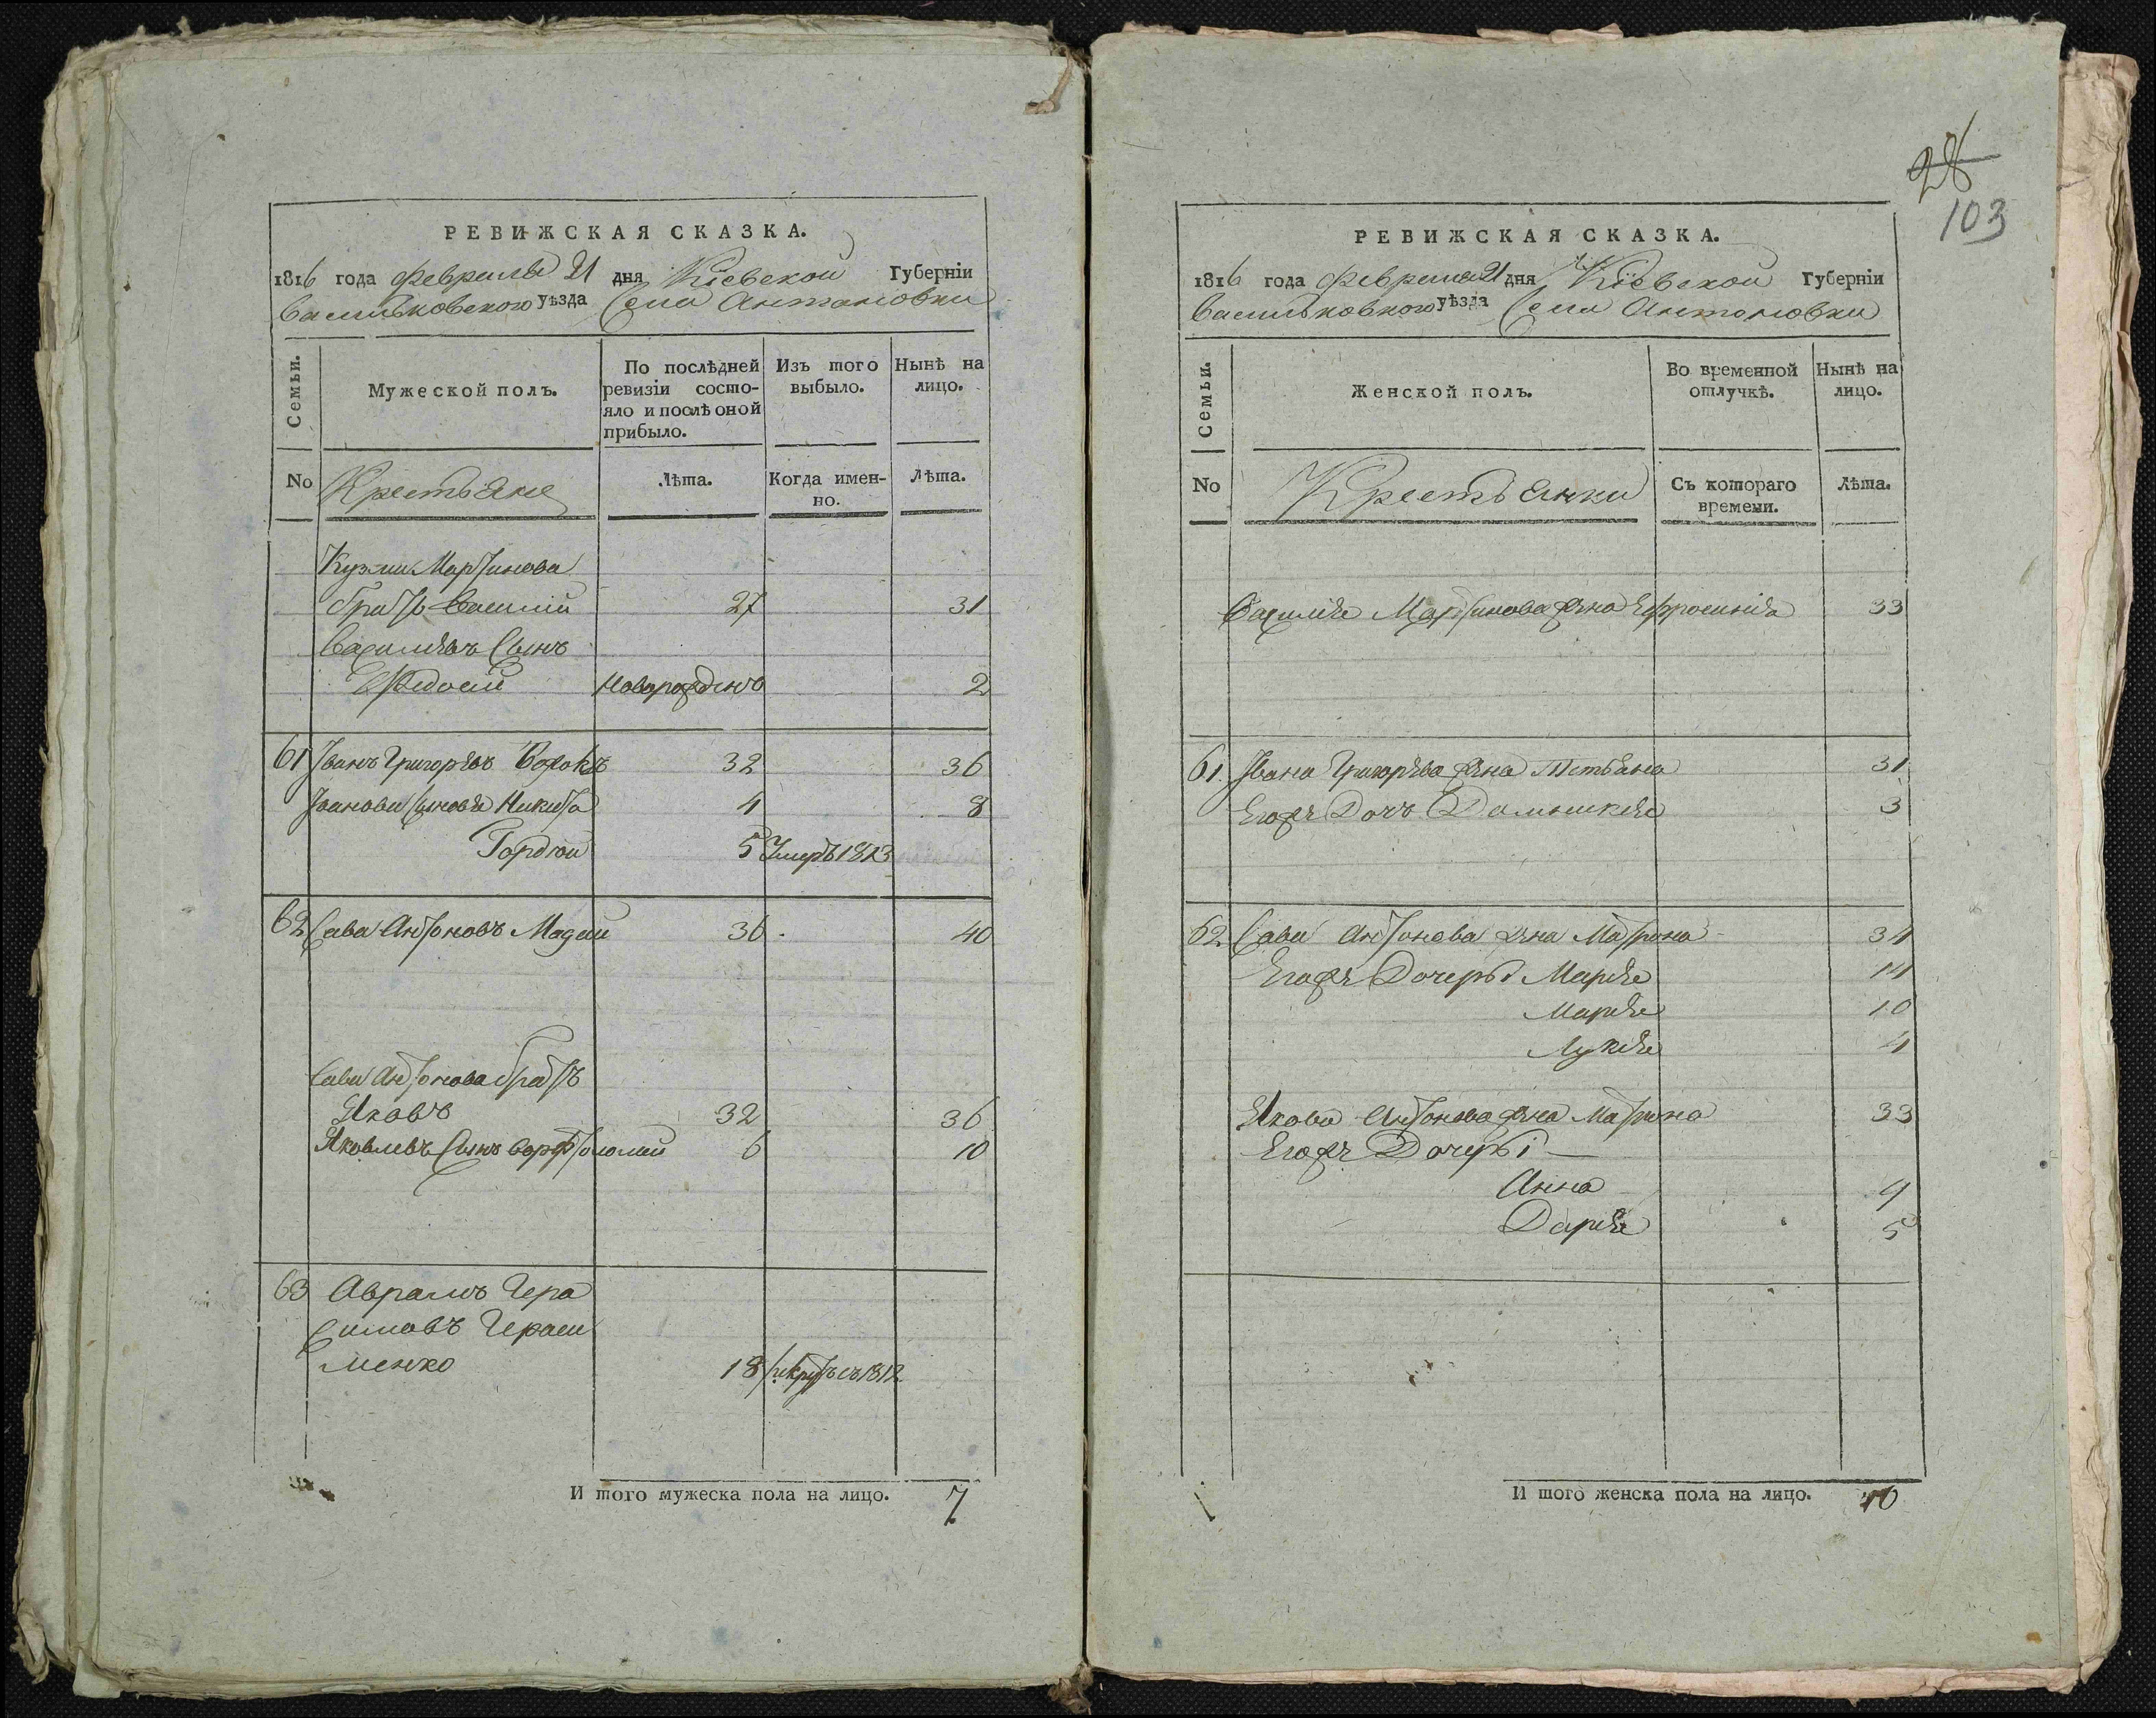 РЕВИЖСКАЯ СКАЗКА.
1816 года Февраля 21 дня Кіевской Губерніи
Васильковского уѣзда Села Антоновки
Семьи.
Мужеской полъ.
По послѣдней ревизіи состояло и послѣ оной прибыло.
Изъ того выбыло.
Нынѣ на лицо.
No
Крестьяне
Лѣта.
Когда именно.
Лѣта.
Кузми Мартинова
братъ Василій 27 31
Василіевъ Сынъ
Федосій Новорожденъ 2
61 Іванъ Григоріевъ 32 36
Іванови Сыновья Никита 4 8
Гордѣй 5 Умеръ 1813
62 Сава Антоновъ 36 40
Сави Антонова братъ
Яковъ 32 36
Яковлевъ Сынъ Варфоломей 6 10
63 Аврамъ Гера
симовъ Гераси
менко 18 рекрутъ съ 1812
И того мужеска пола на лицо. 7
28
103
РЕВИЖСКАЯ СКАЗКА.
1816 года Февраля 21 дня Кіевской Губерніи
Васильковского уѣзда Села Антоновки
Семьи.
Женской полъ.
Во временной отлучкѣ.
Нынѣ на лицо.
No
Крестьянки
Съ котораго времени.
Лѣта.
Василія Мартинова жена Ефросинія 33
61. Івана Григоріева жена 31
Егоже Дочь Домникія 3
62 Сави Антонова жена Матрона 34
Егоже Дочеры Марія 14
Марія 10
Лукія 4
Якова Антонова жена Матрона 33
Егоже Дочеры
Анна 9
Дарія 5
И того женска пола на лицо. 10